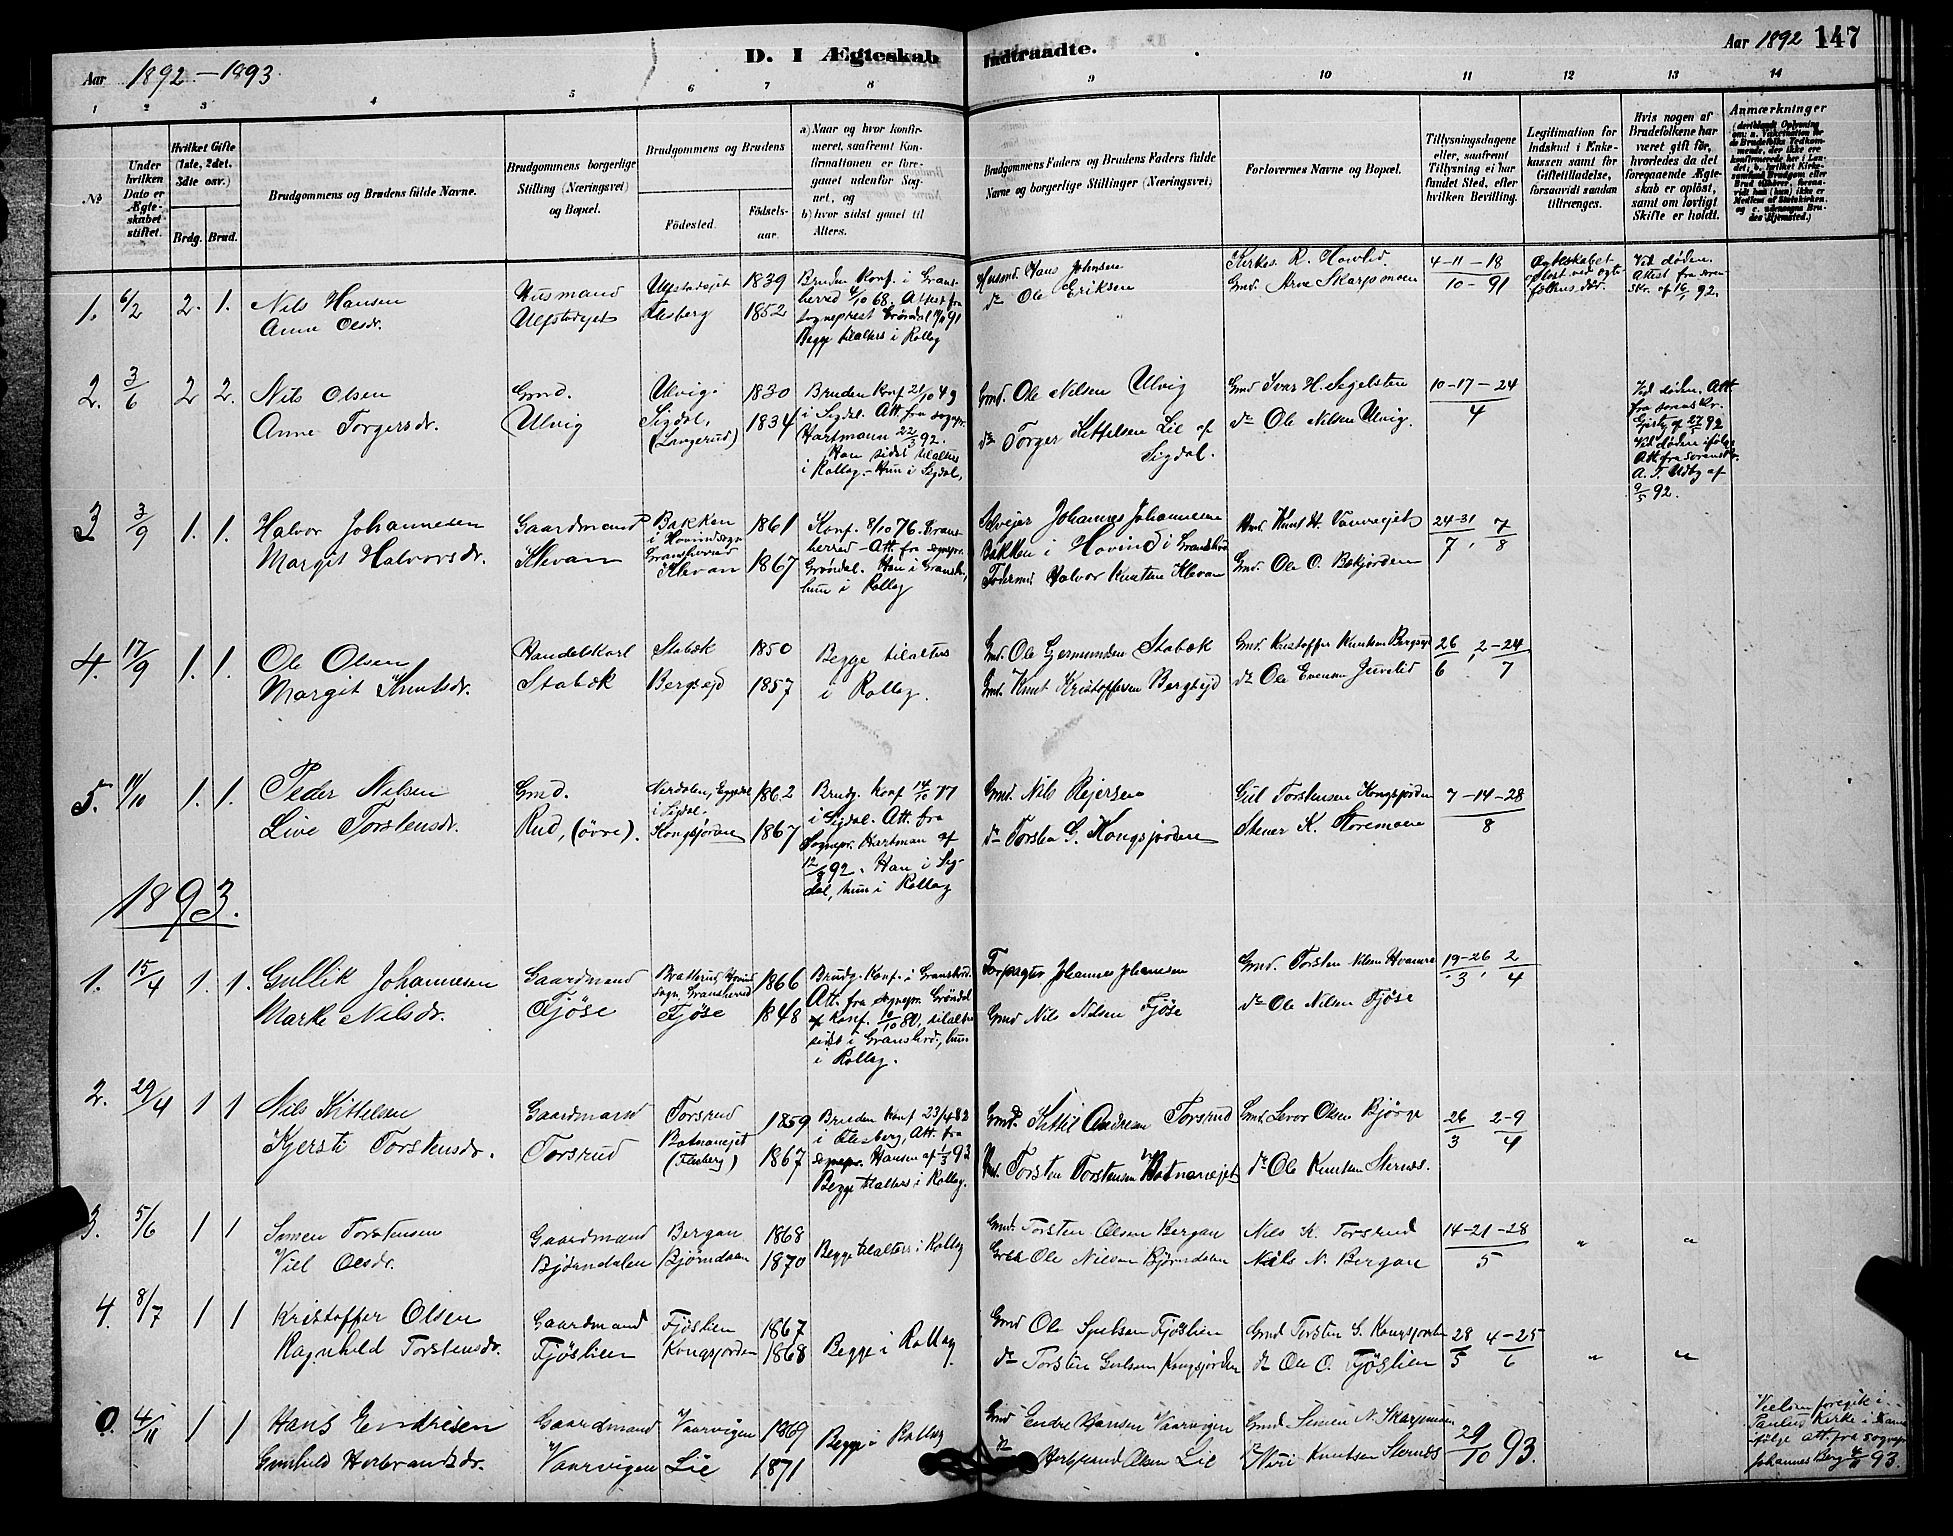 D. I Ægteskab Indtraadte.
Aar 1892-1893.
Aar 1892 147
1 2 3 4 5 6 7 8 9 10 11 12 13 14
№
Under hvilken Dato er Ægteskabet stiftet.
Hvilket Gifte (1ste, 2det, 3die osv.)
Brdg. Brud.
Brudgommens og Brudens fulde Navne.
Brudgommens borgerlige Stilling (Næringsvei) og Bopæl.
Brudgommens og Brudens
Fødested.
Fødselsaar.
a) Naar og hvor konfirmeret, saafremt Konfirmationen er foregaaet udenfor Sognet, og
b) hvor sidst gaaet til Alters.
Brudgommens Faders og Brudens Faders fulde Navne og borgerlige Stillinger (Næringsvei)
Forlovernes Navne og Bopæl.
Tillysningsdagene eller, saafremt Tillysning ei har fundet Sted, efter hvilken Bevilling.
Legitimation for Indskud i Enkekassen samt for Giftetilladelse, forsaavidt saadan tiltrænges.
Hvis nogen af Brudefolkene har været gift før, hvorledes da det foregaaende Ægteskab er opløst, samt om lovligt Skifte er holdt.
Anmærkninger
1. 6/2 2. 1.
Nils Hansen
Anne Olsdr.
Husmand
Ulfstadejet
Ulfstadejet 1839
Flesberg 1852
Bruden Konf. i Gransherred 4/10 68. Attest fra sognepræst Grøndal 11/11 91
Begge tilalters i Rollag
Husmd. Hans Johnsen
do Ole Eriksen
Kirkes. R. Hovlid
Gmd. Arne Skarpmoen
4-11-18
10-91
Ægteskabet opløst ved ægtefølkens død.
Ved døden. Attest fra sorenskr. af 16/1 92.
2. 3/6 2 2.
Nils Olsen
Anne Torgersdr.
Gmd.
Ulvig
Ulvig. 1830
Sigdal, (Langerud) 1834
Bruden Konf 21/10 49
i Sigdal. Att. fra sognepr.
Hartmann 22/3 92.
Han sidst tilalters
i Rollag. - Hun i Sigdal,
Gmd. Ole Nilsen Ulvig
do Torger Kittelsen Lie af Sigdal.
Gmd Ivar H. Segelsten
do Ole Nilsen Ulvig.
10-17-24
4
Ved døden. Att fra sorenskr.
27/5 92
Ved døden ifølge Att. fra sorenskr.
A. T. Udby af
9/5 92.
3 3/9 1. 1.
Halvor Johannesen
Margit Halvorsdr.
Gaardmand
Klevan
Bakken i Hovindsogn Gransherred 1861
Klevan 1867
Konf. 8/10 76. Gransherred - Att. fra sognepr.
Grøndal. Han i Gransh.,
hun i Rollag
Selvejer Johannes Johannesen
Bakken i Hovind i Gransherred
Fødermd Halvor Knutsen Klevan
Hmd Knut H. Vaarviejet
Gmd. Ole O. Bekjorden
24-31 / 7, 7/8
4. 17/9 1. 1.
Ole Olsen
Margit Knutsdr.
Handelskarl
Stabæk
Stabæk 1850
Bergsejd 1857
Begge tilalters
i Rollag.
Gmd. Ole Gjermundsen Stabæk
Gmd. Knut Kristoffersen Bergsejd
Gmd. Kristoffer Knutsen Bergsejd
do Ole Evensen Juvelid
26/6, 2-24/7
5. 11/10 1. 1.
Peder Nilsen
Live Torstensdr.
Gmd.
Rud, (övre).
Nerdalen, Eggedal i Sigdal. 1862
Kongsjorden 1867
Brudg. Konf 14/10 77
i Sigdal. Att. fra
Sognepr. Hartman af
12/8 92. Han i Sigdal, hun i Rollag
Gmd. Nils Rejersen
do Torsten G. Kongsjorden
Gul Torstensen Kongsjorden
Stener K. Storemoen
7-14-28
8
1893.
1. 15/4 1. 1.
Gullik Johannesen
Marte Nilsdr.
Gaardmand
Fjöse
Bratterud Hovind sogn, Gransherred 1866
Fjöse 1848
Brudg. Konf. i Gransherd.
Att. fra sognepr. Grøndal
af Konf. 10/10 80, tilalters
sidst i Gransherd., hun
i Rollag.
Forpagter Johannes Johansen
Gmd Nils Nilsen Fjöse
Gmd. Torsten Nilsen
do Ole Nilsen Fjöse
19-26/3, 2/4
2. 29/4 1 1
Nils Kittelsen
Kjersti Torstensdr.
Gaardmand
Torsrud
Torsrud 1859
Botnanejet (Flesberg) 1867
Bruden Konf 23/4 82
i Flesberg, Att. fra
sognepr. Hansen af 1/3 93
Begge tilalters i Rollag.
Gmd. Kittil Andresen Torsrud
Hmd. Torsten Torstensen Botnanejet
Gmd. Levor Olsen Bjørge
do Ole Knutsen Sternes.
26/3 2-9/4
3. 5/6 1 1
Simen Torstensen
Viel Olsdr.
Gaardmand
Björndalen
Bergan 1868
Björndalen 1870
Begge tilalters i Rollag
Gmd. Torsten Olsen Bergan
Gmd Ole Nilsen Björndalen
Nils K. Torsrud
Nils N. Bergan
14-21-28
5
" "
4. 8/7 1 1
Kristoffer Olsen
Ragnhild Torstensdr.
Gaardmand
Fjöslien
Fjöslien 1867
Kongsjorden 1868
Begge i Rollag
Gmd Ole Fjöslien
do Torsten Gulsen Kongsjorden
Gmd Torsten G. Kongsjorden
do Ole O. Fjöslien
28/5 4-25/6
" "
0. 4/11 1 1
Hans Endresen
Gunhild Herbrandsdr.
Gaardsmand
Vaarvigen
Vaarvigen 1869
Lie 1871
Begge i Rollag
Gmd Endre Hansen Vaarvigen
do Herbrand Olsen Lie
Gmd. Simen N. Skarpmoen
do Knutsen Sternes
29/10 93.
Vielsen foregik i
Paulus Kirke i
ifølge att. fra sognepr
Johannes Berg 4/11 93.